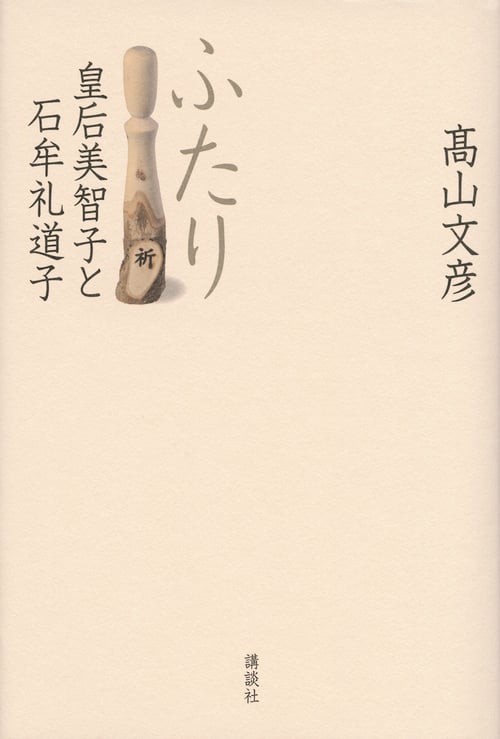 髙山文彦
ふたり
祈
皇后美智子と
石牟礼道子
講談社